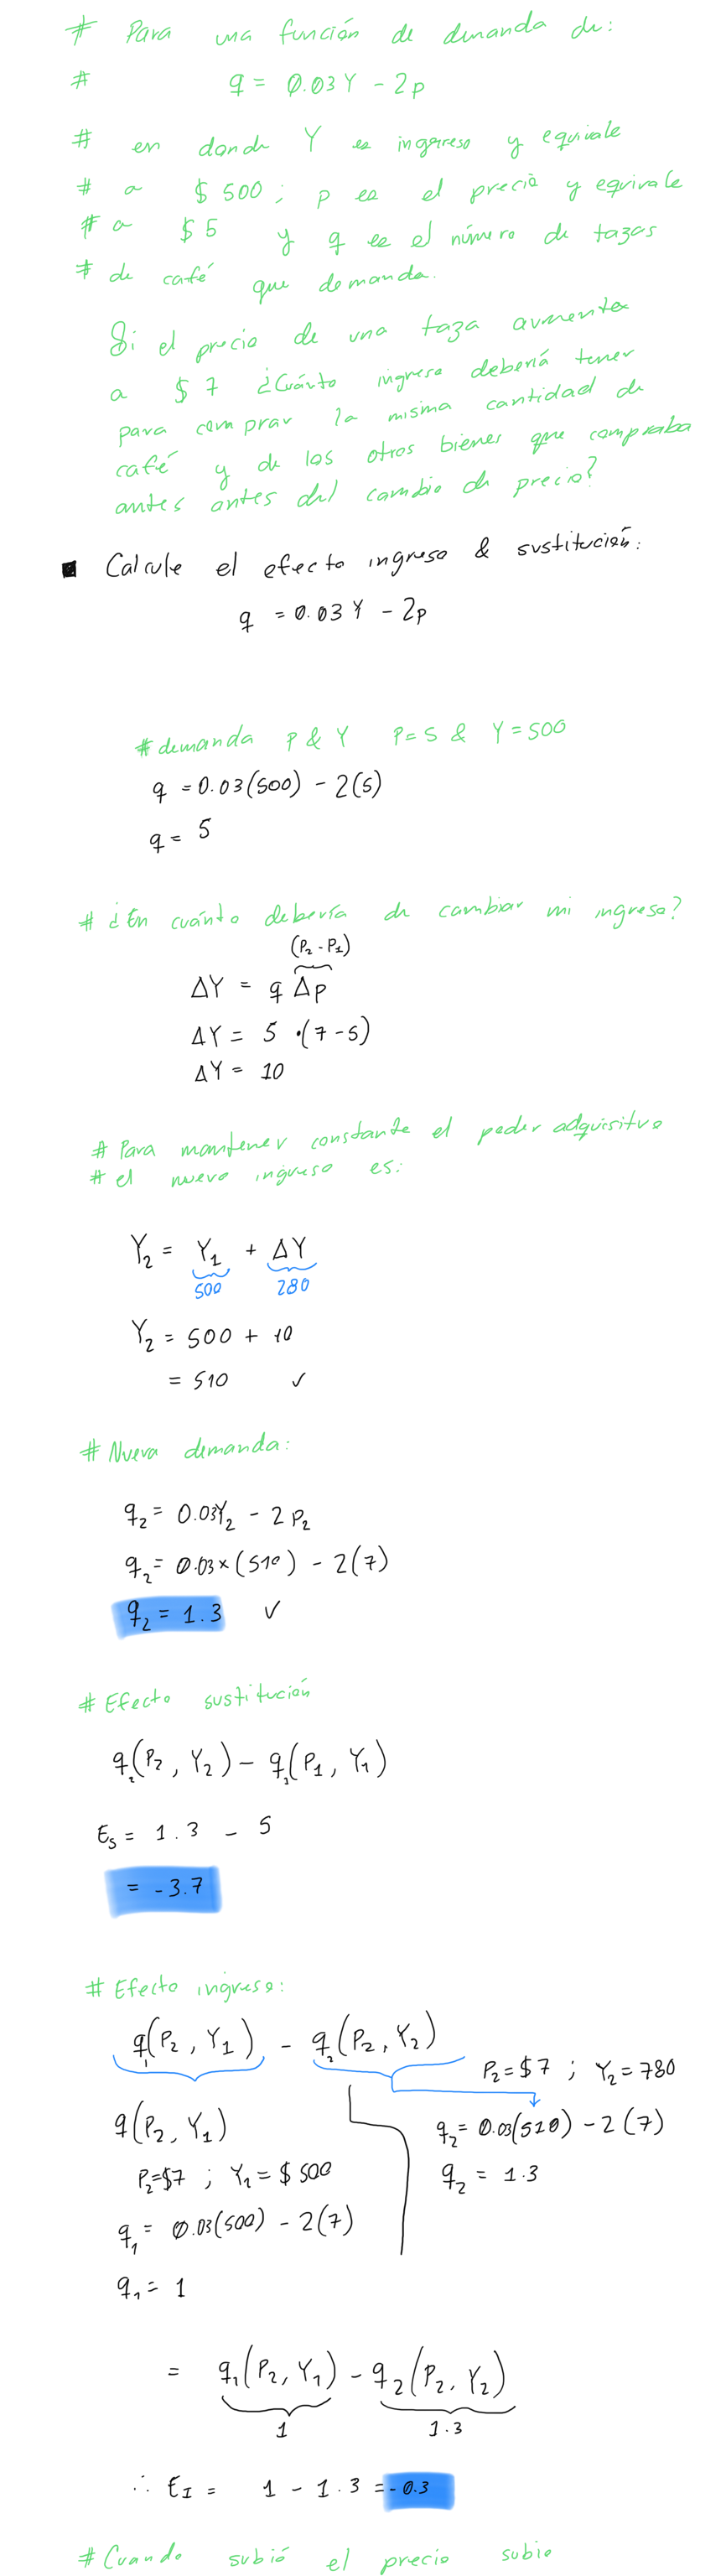 # Para una función de demanda de:
# q = 0.03Y - 2p
# en donde Y es ingreso y equivale
# a $500; p es el precio y equivale
# a $5 y q es el número de tazas
# de café que demanda.
Si el precio de una taza aumenta
a $7 ¿Cuánto ingreso debería tener
para comprar la misma cantidad de
café y de los otros bienes que compraba
antes antes del cambio de precio?
■ Calcule el efecto ingreso & sustitución:
q = 0.03Y - 2p
# demanda P & Y P=5 & Y=500
q = 0.03(500) - 2(5)
q = 5
# ¿En cuánto debería de cambiar mi ingreso?
(P₂ - P₁)
ΔY = q Δp
ΔY = 5 ·(7-5)
ΔY = 10
# Para mantener constante el poder adquisitvo
# el nuevo ingreso es:
Y₂ = Y₁ + ΔY
500 280
Y₂ = 500 + 10
= 510 ✓
# Nueva demanda:
q₂ = 0.03Y₂ - 2p₂
q₂ = 0.03×(510) - 2(7)
q₂ = 1.3 ✓
# Efecto sustitución
q₂(P₂, Y₂) - q₁(P₁, Y₁)
Es = 1.3 - 5
= -3.7
# Efecto ingreso:
q₁(P₂, Y₁) - q₂(P₂, Y₂)
P₂=$7 ; Y₂=780
q(P₂, Y₁)
q₂ = 0.03(510) - 2(7)
P₂=$7 ; Y₁=$500
q₂ = 1.3
q₁ = 0.03(500) - 2(7)
q₁ = 1
= q₁(P₂, Y₁) - q₂(P₂, Y₂)
1 1.3
∴ E_I = 1 - 1.3 = -0.3
# Cuando subió el precio subio